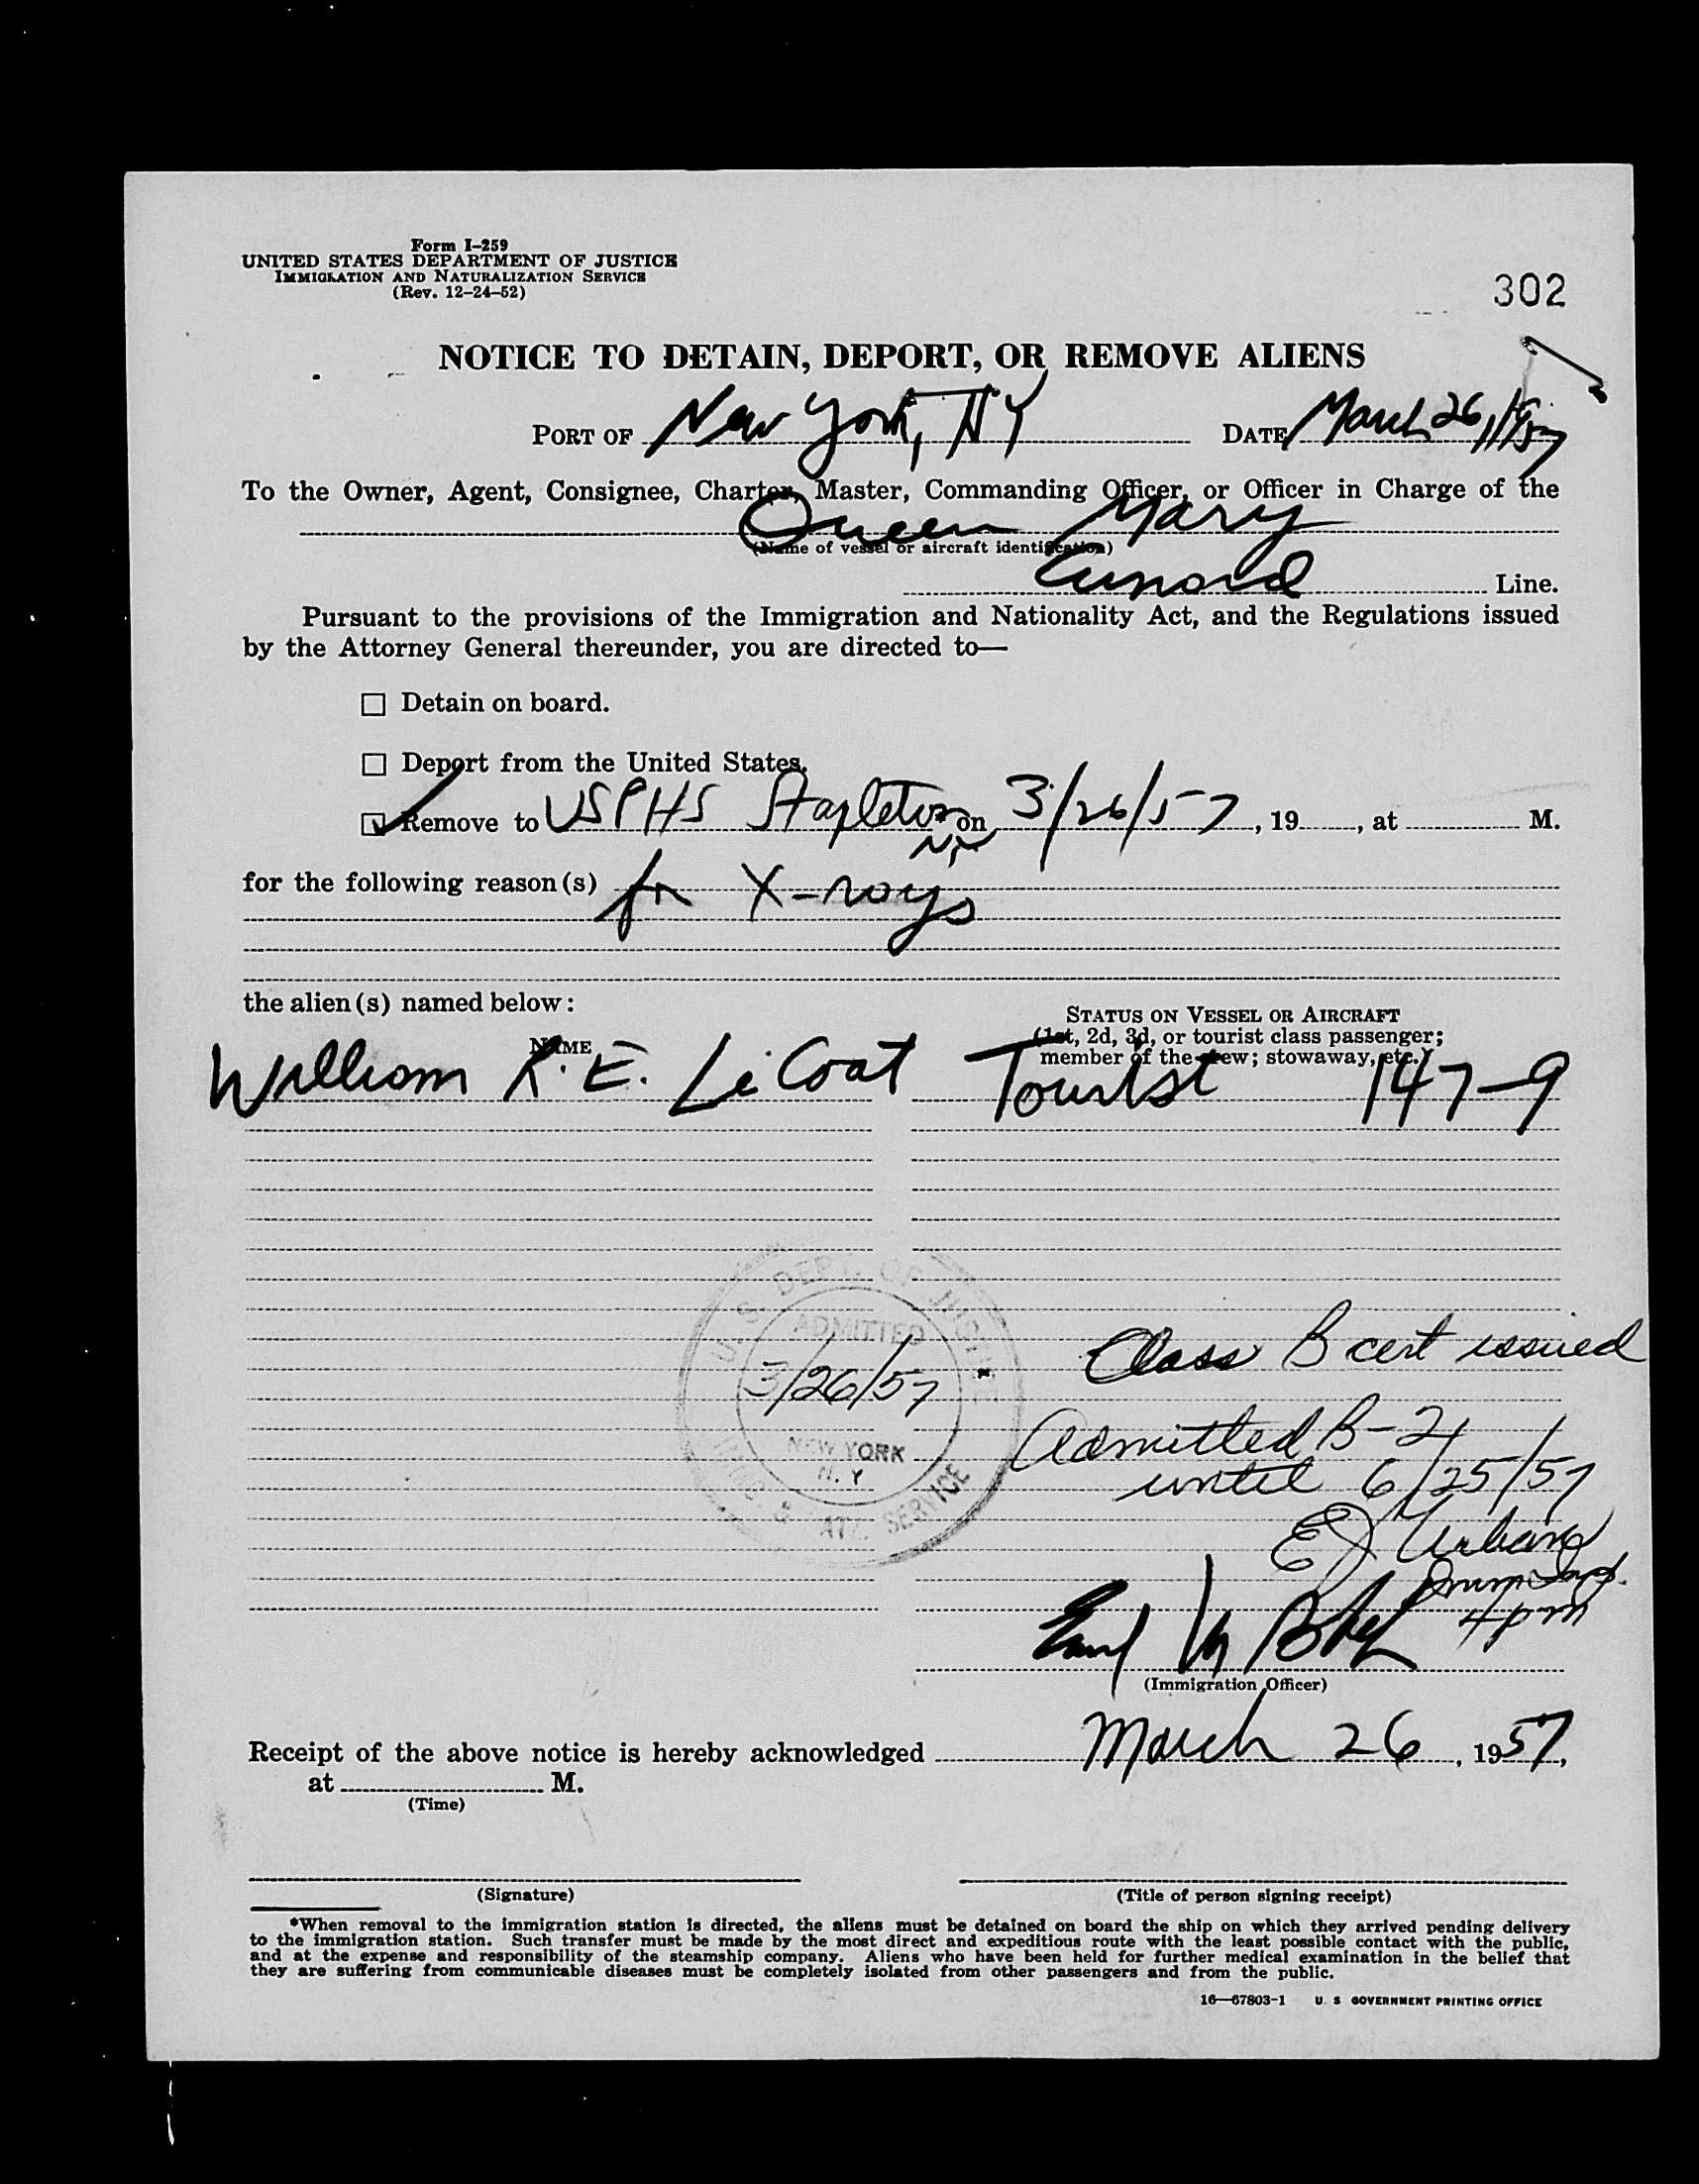 Form I-259
UNITED STATES DEPARTMENT OF JUSTICE
IMMIGRATION AND NATURALIZATION SERVICE
(Rev. 12-24-52)
302
NOTICE TO DETAIN, DEPORT, OR REMOVE ALIENS
PORT OF New York, NY DATE March 26, 1957
To the Owner, Agent, Consignee, Charter, Master, Commanding Officer, or Officer in Charge of the
Queen Mary
(Name of vessel or aircraft identification)
Cunard Line.
Pursuant to the provisions of the Immigration and Nationality Act, and the Regulations issued
by the Attorney General thereunder, you are directed to—
☐ Detain on board.
☐ Deport from the United States.
☑ Remove to USPHS Stapleton * on 3/26/57, 19......, at ............ M.
NY
for the following reason(s) for X-rays
the alien(s) named below:
STATUS ON VESSEL OR AIRCRAFT
NAME (1st, 2d, 3d, or tourist class passenger;
member of the crew; stowaway, etc.)
William R. E. Le Coat Tourist 147-9
U. S. DEPT. OF JUSTICE
ADMITTED
3/26/57
NEW YORK
N. Y
IMMIG. & NATZ. SERVICE
Class B cert issued
Admitted B-2
until 6/25/57
E J Urbano
Imm Insp.
4 pm
(Immigration Officer)
Receipt of the above notice is hereby acknowledged March 26, 1957,
at ............ M.
(Time)
(Signature) (Title of person signing receipt)
*When removal to the immigration station is directed, the aliens must be detained on board the ship on which they arrived pending delivery
to the immigration station. Such transfer must be made by the most direct and expeditious route with the least possible contact with the public,
and at the expense and responsibility of the steamship company. Aliens who have been held for further medical examination in the belief that
they are suffering from communicable diseases must be completely isolated from other passengers and from the public.
16—67803-1 U. S GOVERNMENT PRINTING OFFICE